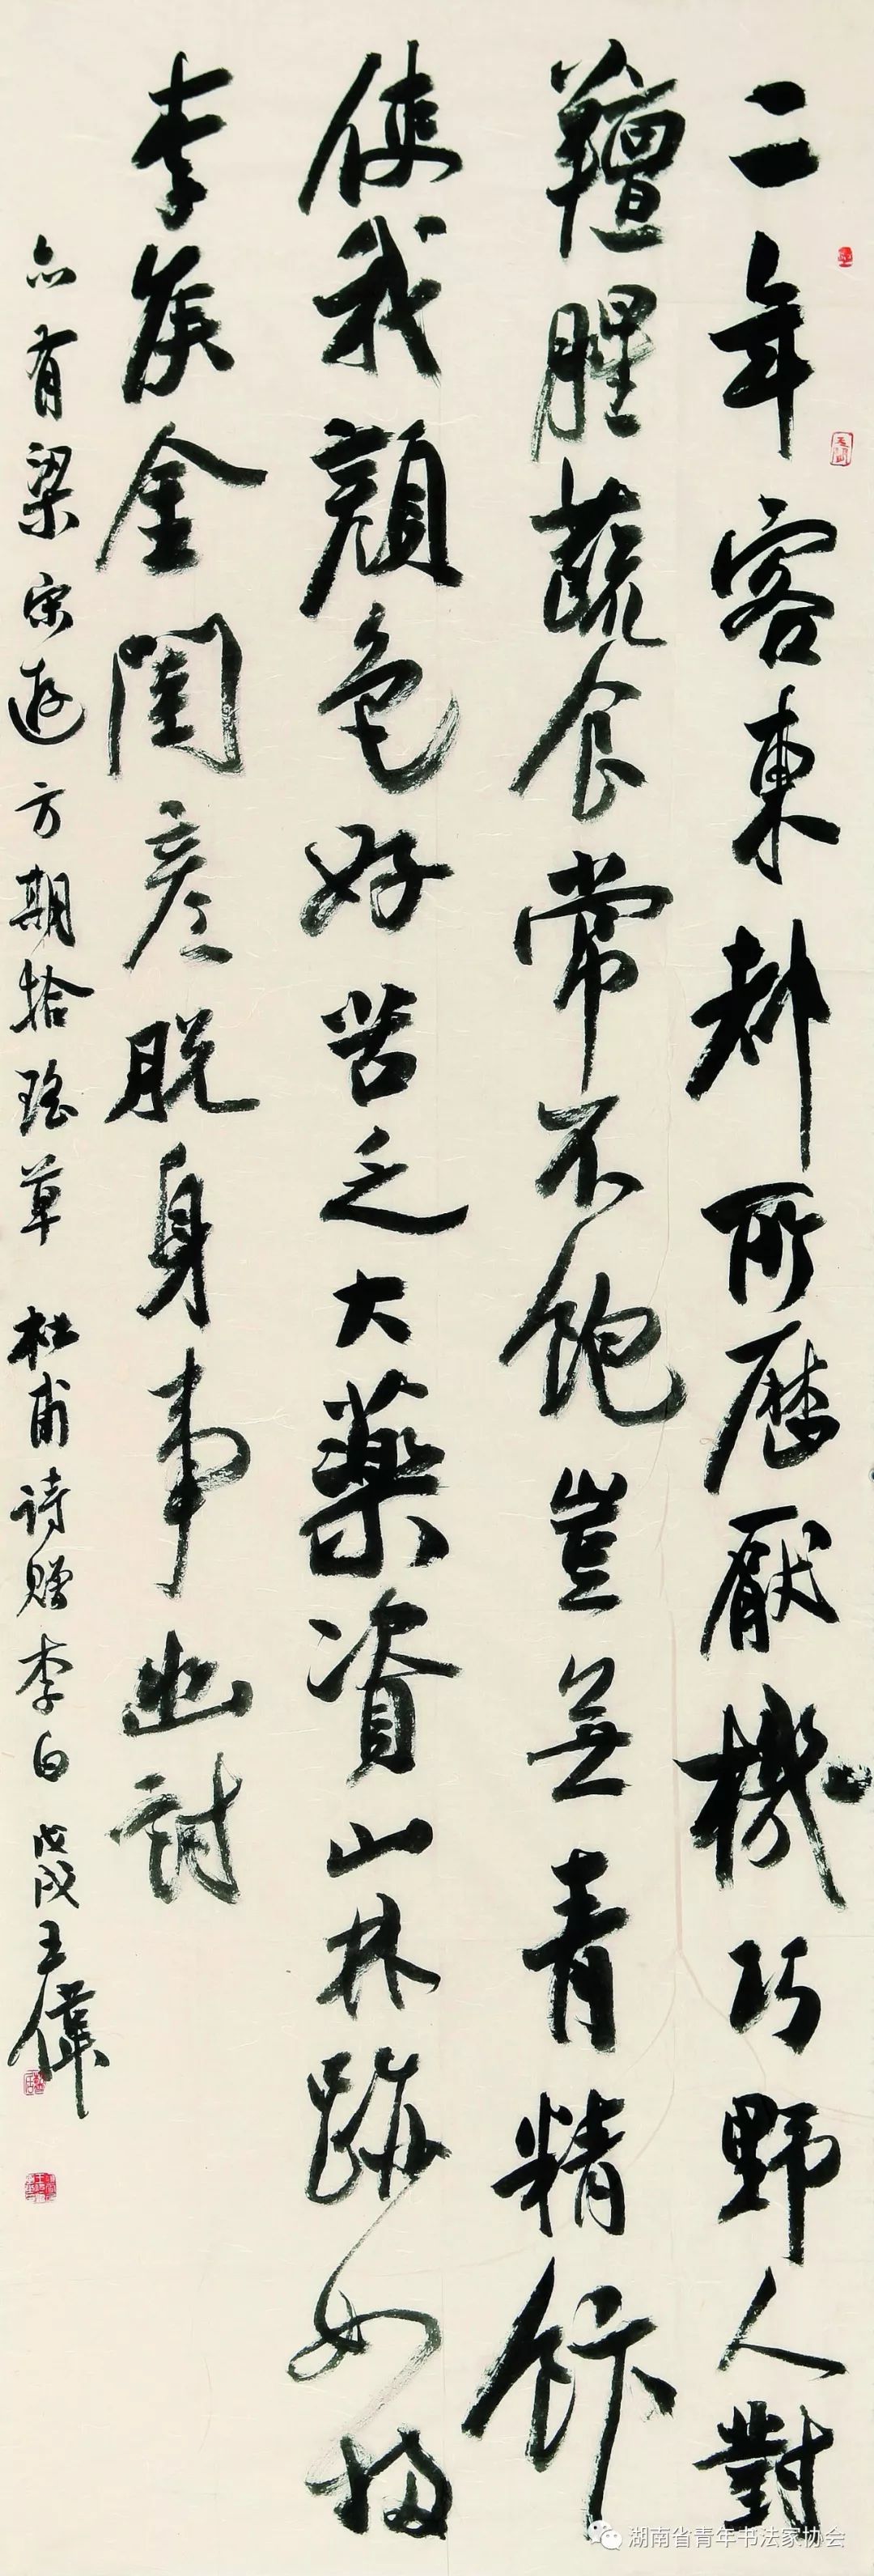 二年客東都所歷厭機巧野人對
羶腥蔬食常不飽豈無青精飯
使我顏色好苦乏大藥資山林跡如掃
李侯金閨彥脫身事幽討
亦有梁宋遊方期拾瑤草 杜甫詩贈李白 戊戌王偉
湖南省青年书法家协会